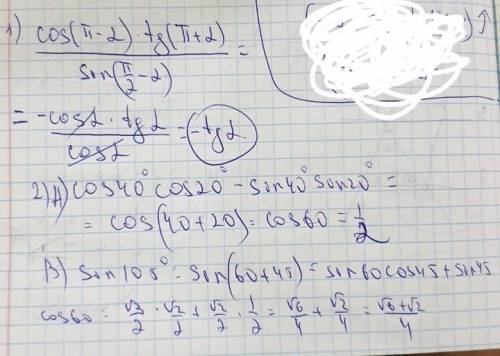 1) cos(π-α)·tg(π+α) / sin(π/2-α) =
= -cosα·tgα / cosα = -tgα
2) A) cos40° cos20° - sin40° sin20° =
= cos(40+20) = cos60 = 1/2
B) sin105° = sin(60+45) = sin60cos45 + sin45
cos60 = √3/2 · √2/2 + √2/2 · 1/2 = √6/4 + √2/4 = √6+√2/4